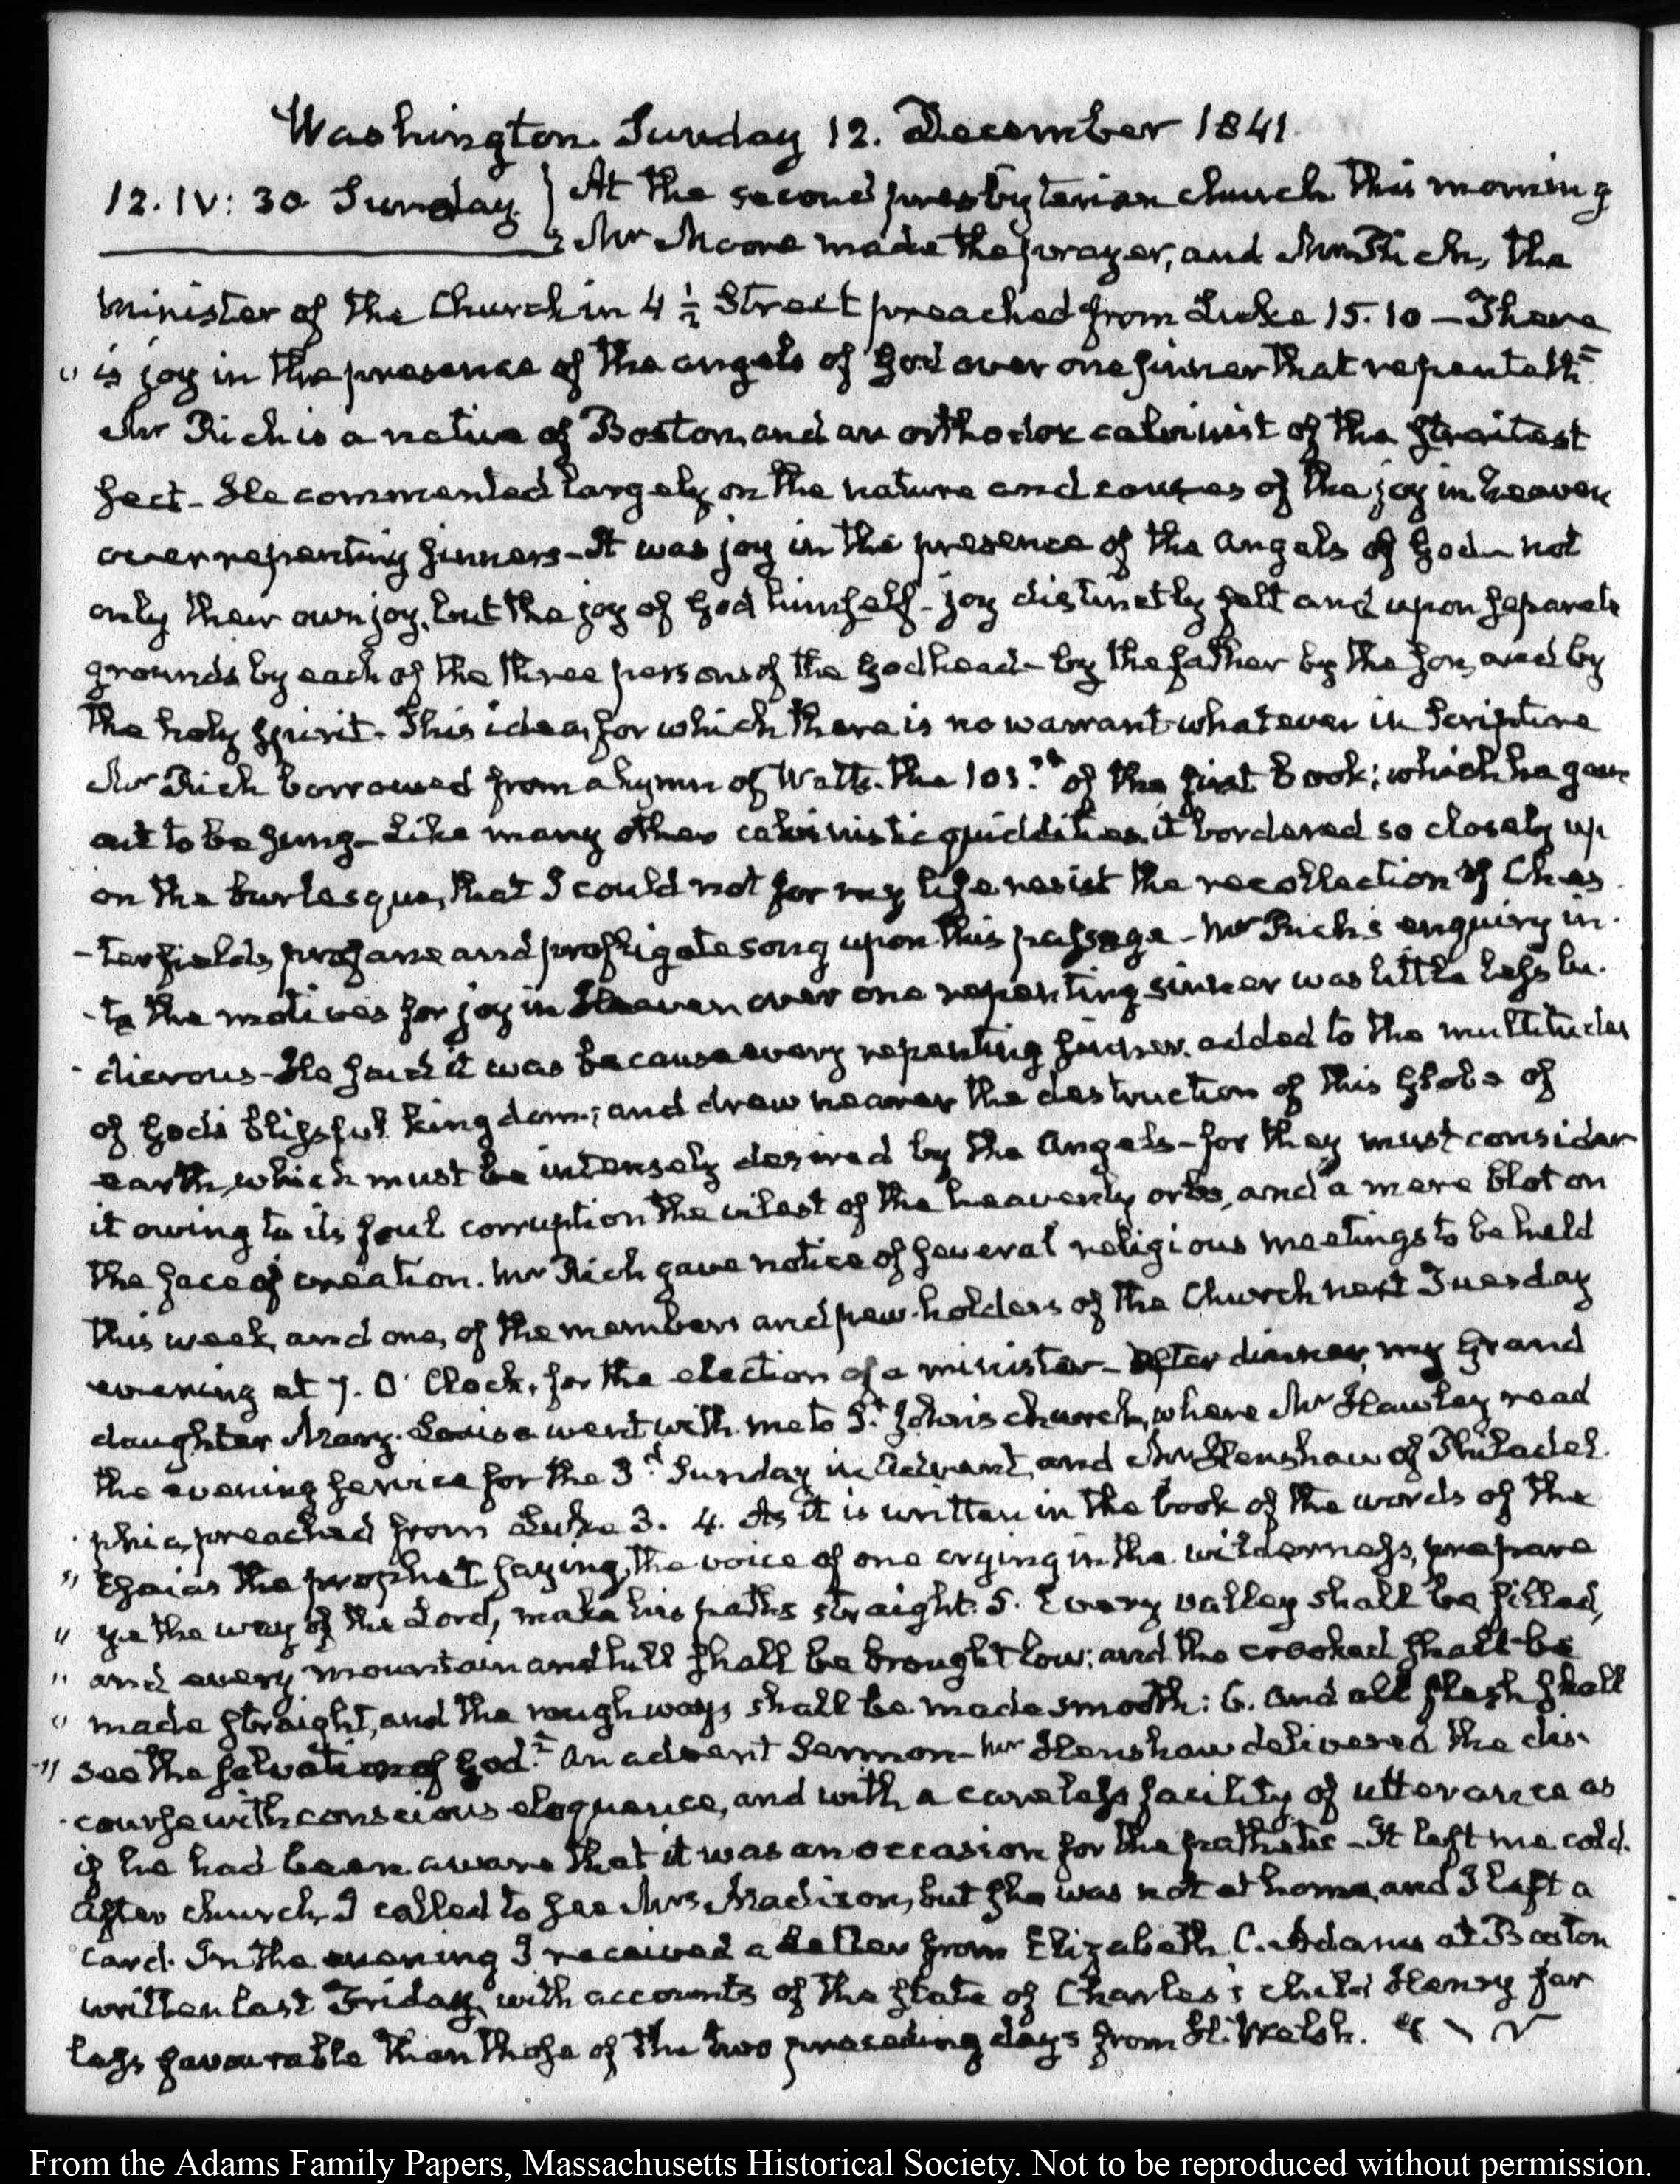 Washington. Sunday 12. December 1841.
12. IV: 30. Sunday. } At the second presbyterian church this morning
Mr Moore made the prayer, and Mr Rich, the
minister of the Church in 4 1/2 Street preached from Luke 15. 10 — There
" is joy in the presence of the angels of God over one sinner that repenteth"
Mr Rich is a native of Boston, and an orthodox calvinist of the straitest
sect - He commented largely on the nature and causes of the joy in heaven
over repenting sinners - It was joy in the presence of the Angels of God - not
only their own joy, but the joy of God himself - joy distinctly felt and upon separate
grounds by each of the three persons of the Godhead - by the father by the son, and by
the holy spirit - This idea, for which there is no warrant whatever in Scripture
Mr Rich borrowed from a hymn of Watts. the 101.st of the first book; which he gave
out to be sung - Like many other calvinistic quiddities, it bordered so closely up
on the burlesque, that I could not for my life resist the recollection of Ches
-terfield's profane and profligate song upon this passage - Mr Rich's enquiry in-
-to the motives for joy in Heaven over one repenting sinner was little less lu-
-dicrous - He said it was because every repenting sinner, added to the multitudes
of God's blissful kingdom; and drew nearer the destruction of this Globe of
earth, which must be intensely desired by the Angels - for they must consider
it owing to its foul corruption the vilest of the heavenly orbs, and a mere blot on
the face of creation. Mr Rich gave notice of several religious meetings to be held
this week, and one, of the members and pew-holders of the Church next Tuesday
evening at 7. O'Clock, for the election of a minister - After dinner, my Grand
daughter Mary-Louisa went with me to St. John's church, where Mr Hawley read
the evening service for the 3d Sunday in Advent, and Mr Henshaw of Philadel-
-phia, preached from Luke 3. 4. As it is written in the book of the words of the
" Esaias the prophet, saying, the voice of one crying in the wilderness, prepare
" ye the way of the Lord, make his paths straight. 5. Every valley shall be filled,
" and every mountain and hill shall be brought low; and the crooked shall be
" made straight, and the rough ways shall be made smooth: 6. And all flesh shall
" see the salvation of God." An advent Sermon - Mr Henshaw delivered the dis-
-course with conscious eloquence, and with a careless facility of utterance as
if he had been aware that it was an occasion for the pathetic - It left me cold.
After church, I called to see Mrs Madison, but she was not at home, and I left a
card. In the evening I received a letter from Elizabeth C. Adams at Boston
written last Friday, with accounts of the state of Charles's child Henry far
less favourable than those of the two preceding days from H. Welsh.
From the Adams Family Papers, Massachusetts Historical Society. Not to be reproduced without permission.